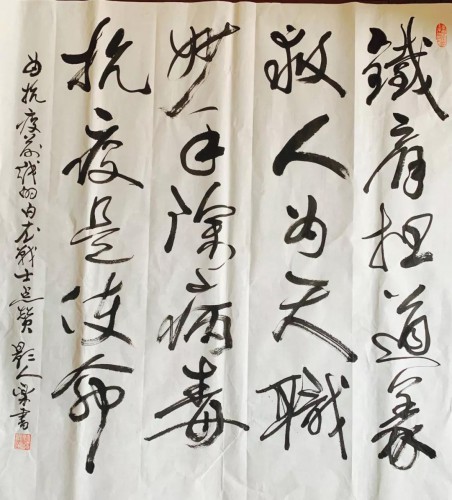 鐵肩担道義
救人为天職
妙手除病毒
抗疫是使命
抗疫前线的白衣戰士点赞 人樂書